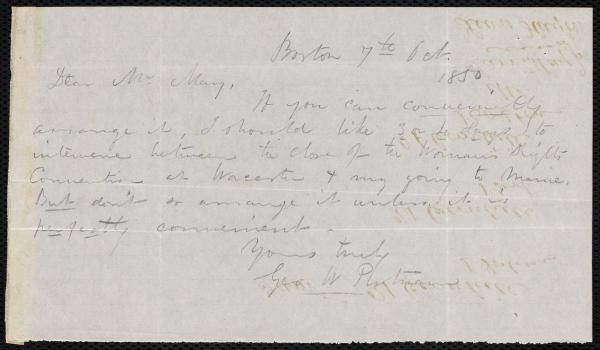 Boston 7th Oct.
1850
Dear Mr May,
If you can conveniently
arrange it, I should like 3 or 4 days to
intervene between the close of the Woman's Rights
Convention at Worcester & my going to Maine.
But don't so arrange it unless it is
perfectly convenient.
Yours truly
Geo. W Putnam